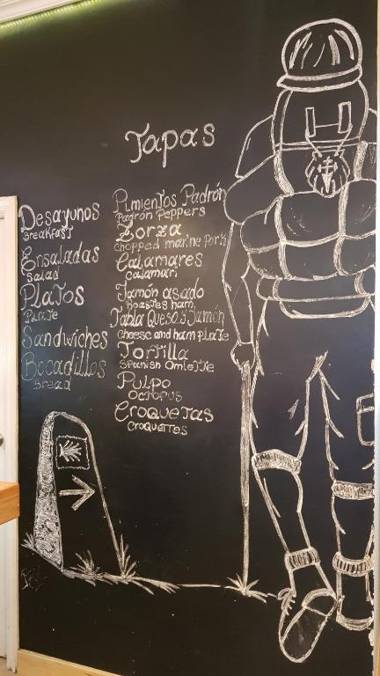 Tapas
Desayunos
Breakfast
Ensaladas
Salad
Platos
Plate
Sandwiches
Bocadillos
Bread
Pimientos Padrón
Padron Peppers
Zorza
Chopped marine Pork
Calamares
Calamari
Jamón asado
Roastes ham
Tabla Queso & Jamón
Cheese and ham plate
Tortilla
Spanish Omlette
Pulpo
Octopus
Croquetas
Croquettas